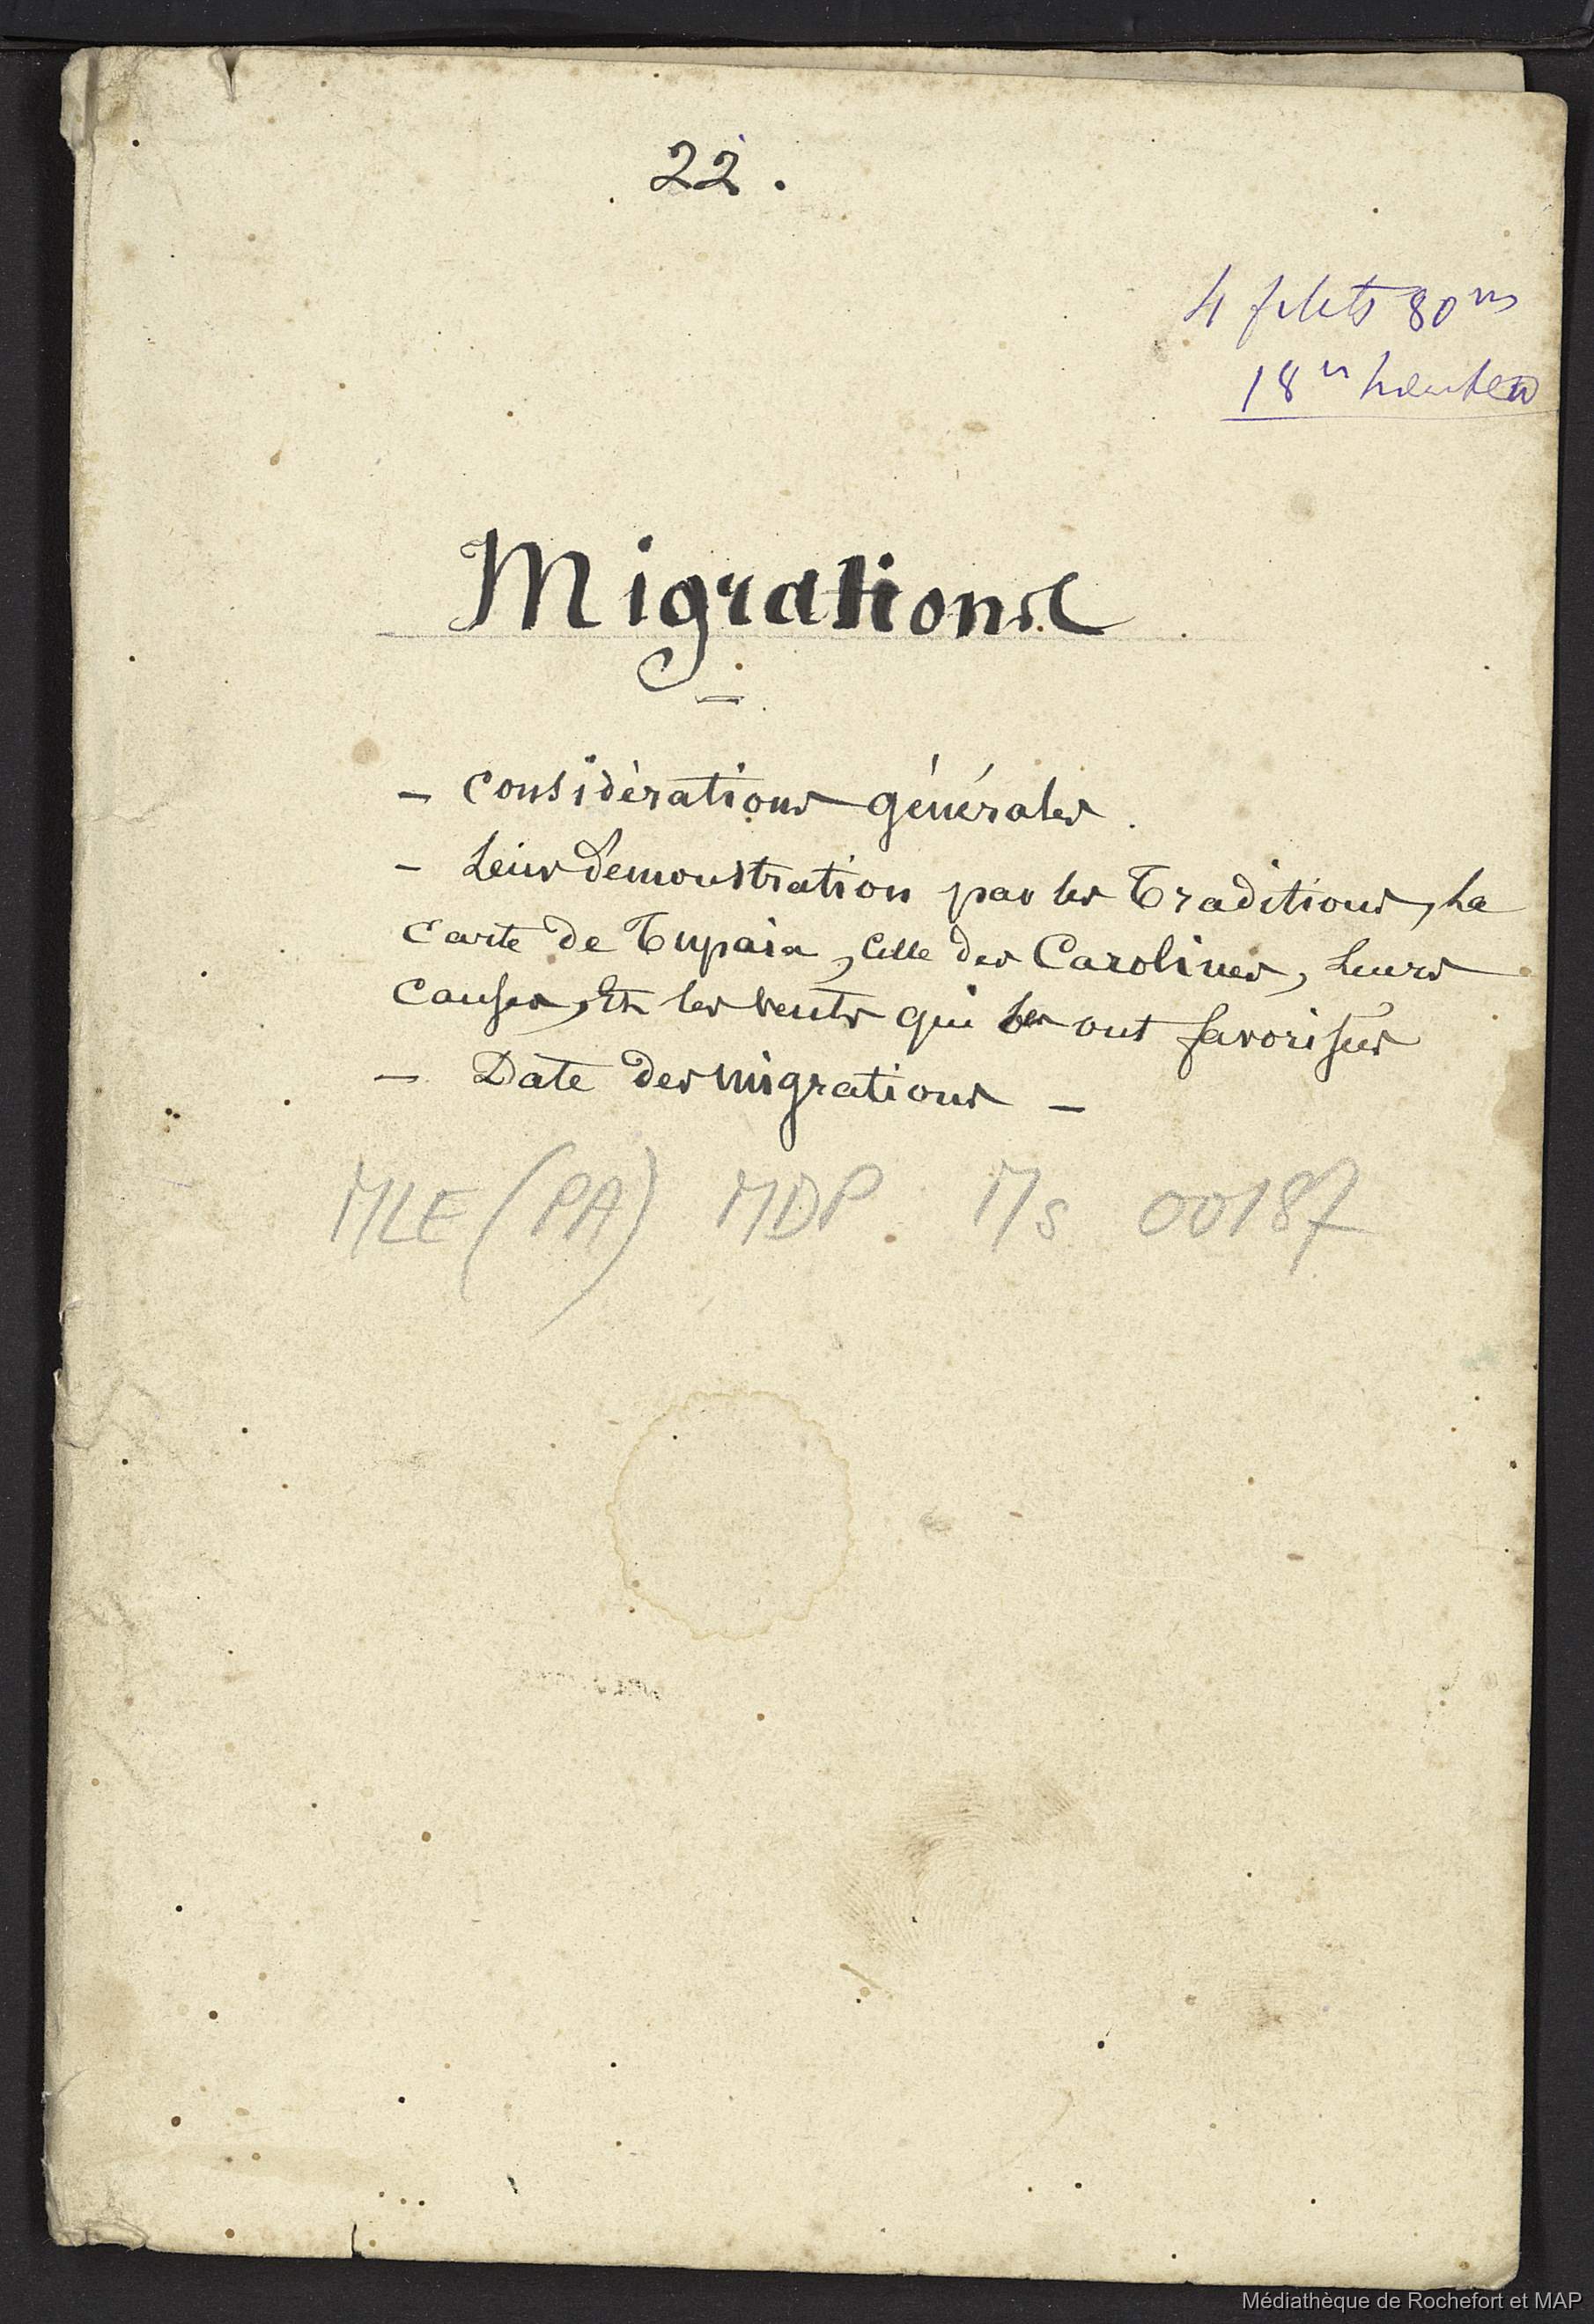 22.
4 filets 80 ms
18 m hauteur
Migrations.
- Considérations générales.
- Leur démonstration par les Traditions, La
Carte de Tupaia, Celle des Carolines, Leurs
Causes, Et les vents qui les ont favorisées
- Date des migrations -
MLE (PA) MDP Ms 00187
Médiathèque de Rochefort et MAP